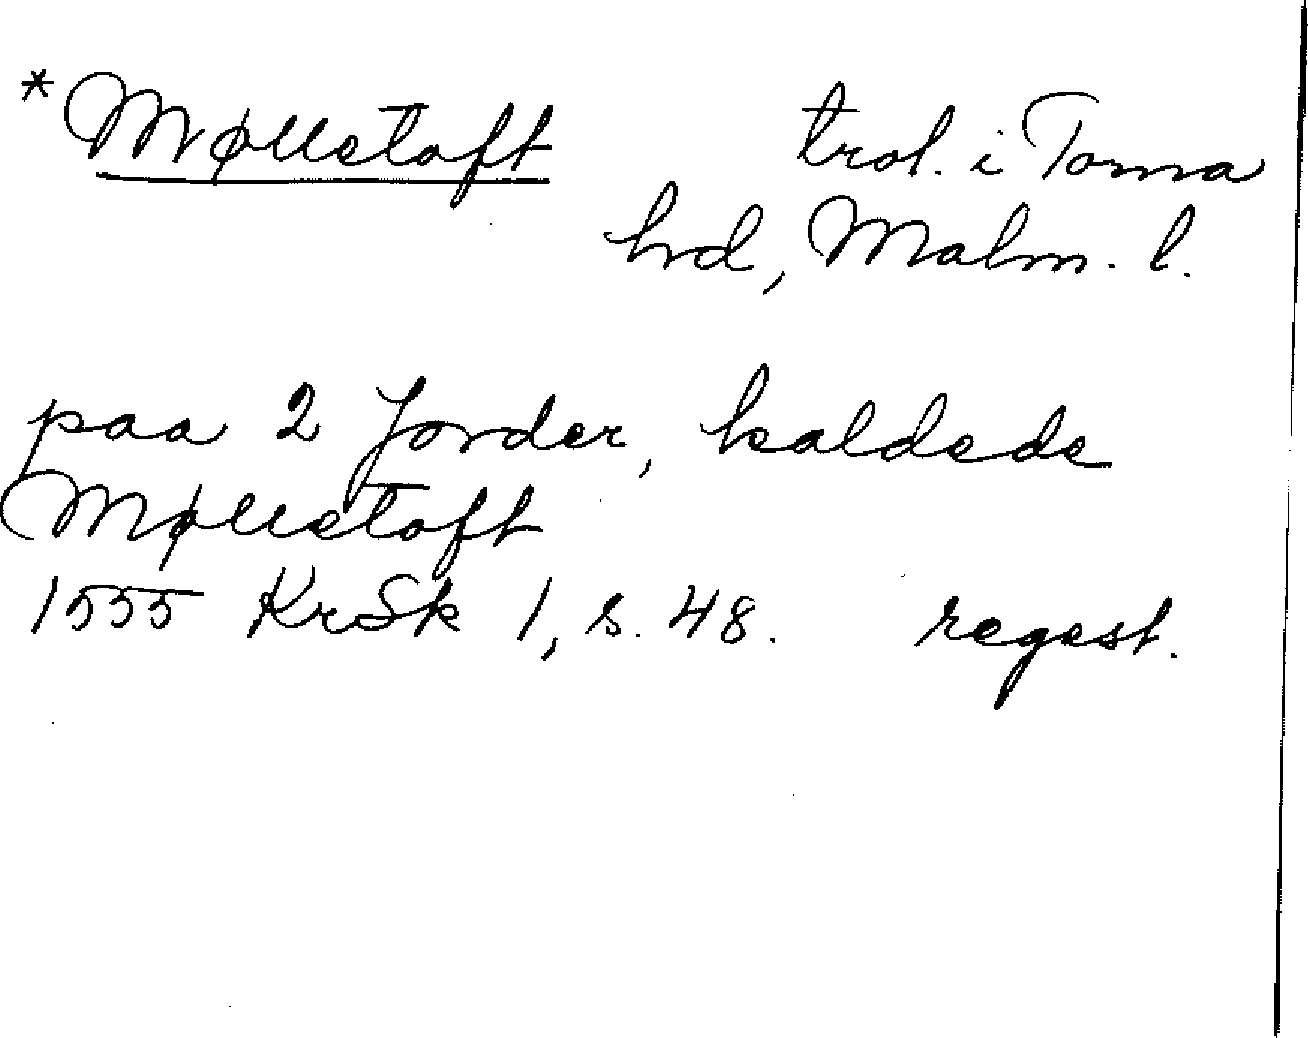 *Mølletoft trol. i Torna
hrd, Malm. l.
paa 2 Jorder, kaldede
Mølletoft
1555 KrSk 1, s. 48. regest.